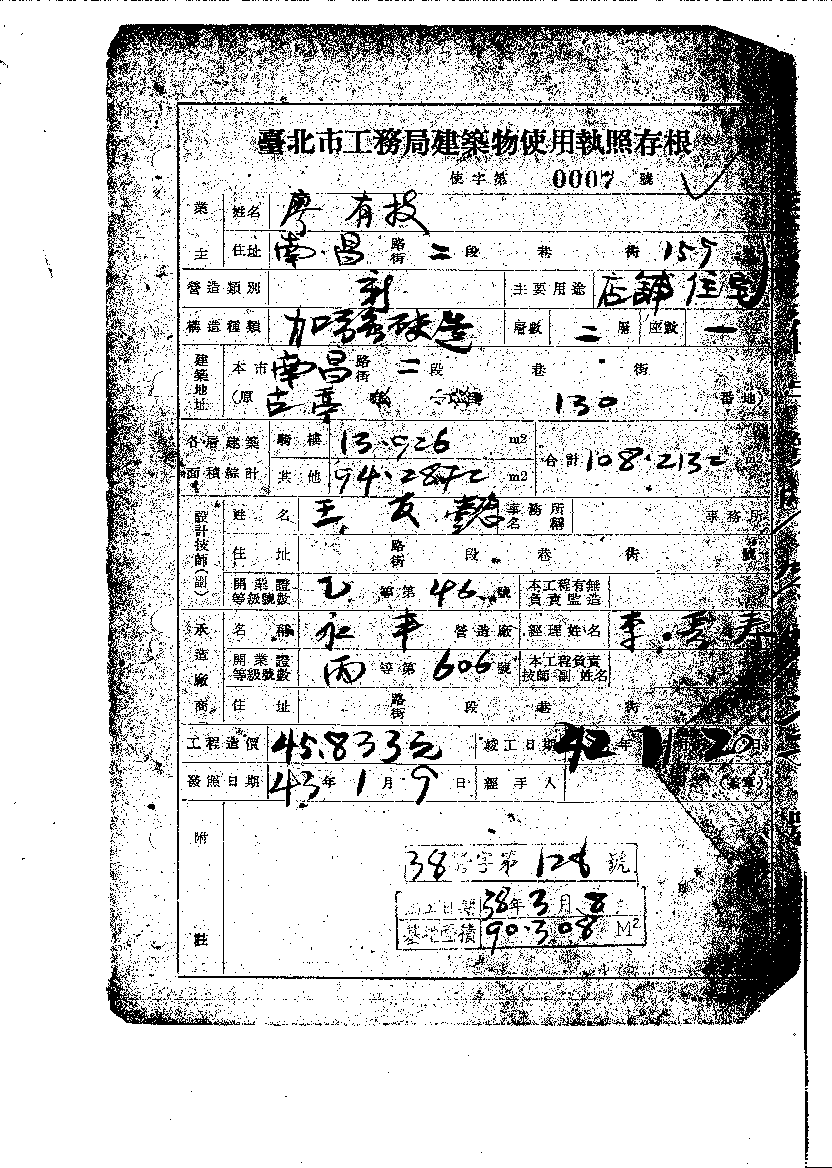 臺北市工務局建築物使用執照存根
使字第 0007 號
業主 姓名 廖有技
住址 南昌 路街 二 段 巷 街 157
營造類別 新 主要用途 店舖住宅
構造種類 加強磚造 層數 二 層 座數 一
建築地址 本市 南昌 路街 二 段 巷 街
(原 古亭 130 番地)
各層建築面積綜計 騎樓 13.926 m2 合計 108.2132
其他 94.2872 m2
設計技師(副) 姓名 王友 事務所名稱 事務所
住址 路街 段 巷 街 號
開業證等級號數 乙 等第 46 號 本工程有無負責監造
承造廠商 名稱 永丰 營造廠 經理姓名 李 寿
開業證等級號數 丙 等第 606 號 本工程負責技師 副 姓名
住址 路街 段 巷 街
工程造價 45.833元 竣工日期 42年11月20日
發照日期 43年1月9日 經手人
附註
38 字第 128 號
工日期 38年3月8
基地面積 90.308 M2